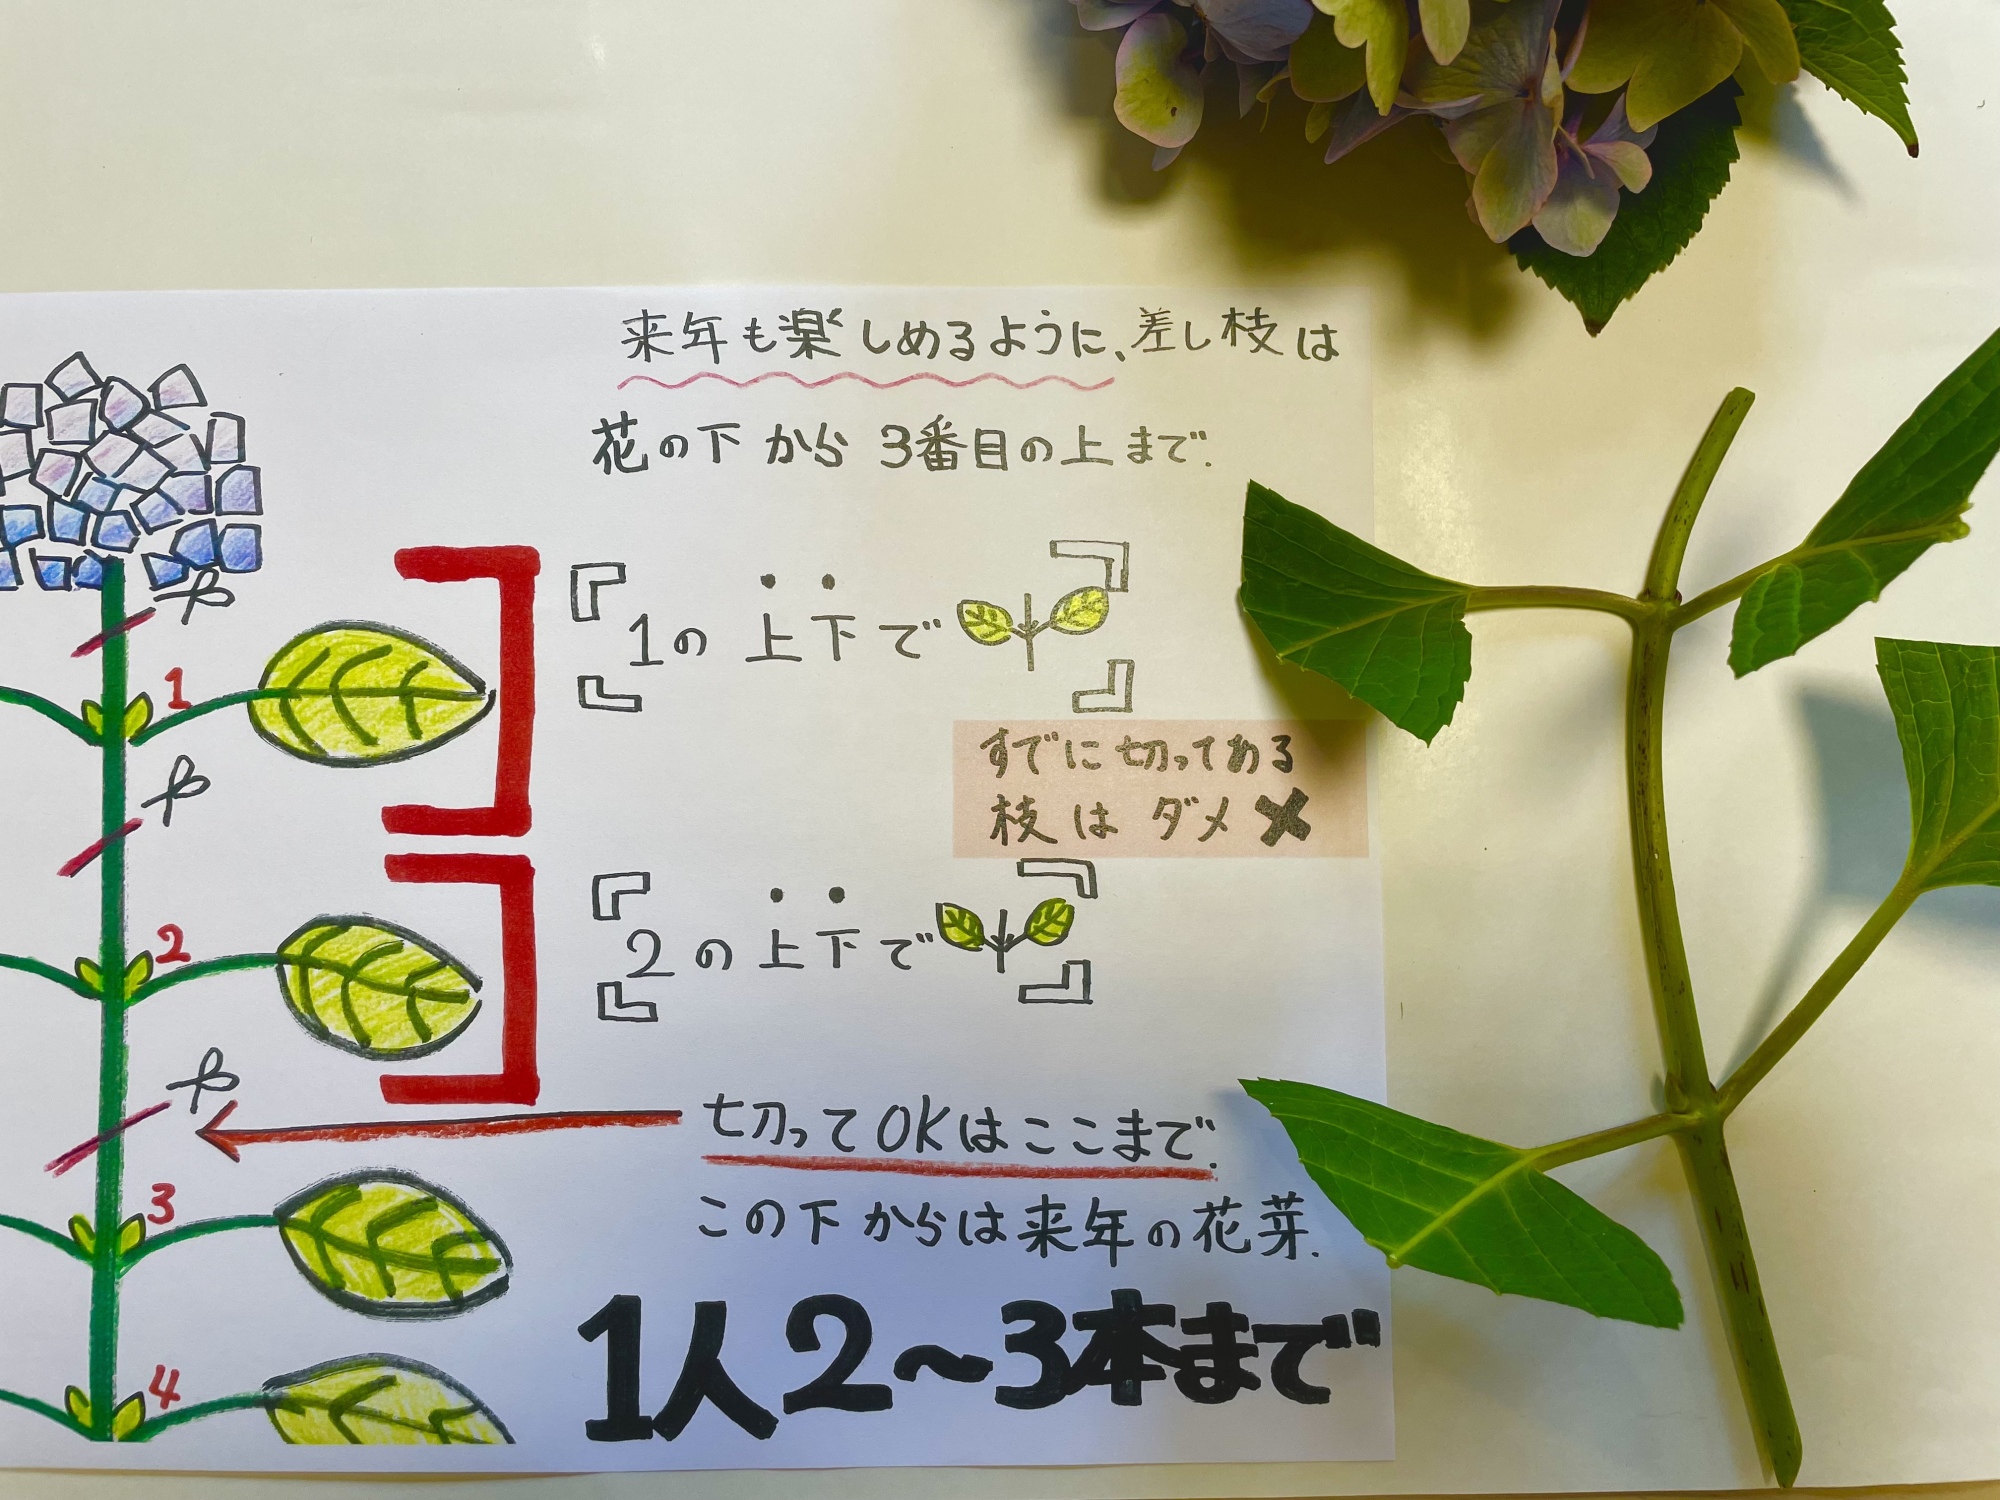 来年も楽しめるように、差し枝は
花の下から3番目の上まで.
1
『1の上下で』
すでに切ってある
枝はダメ✖
2
『2の上下で』
切ってOKはここまで.
3
この下からは来年の花芽.
4
1人2〜3本まで